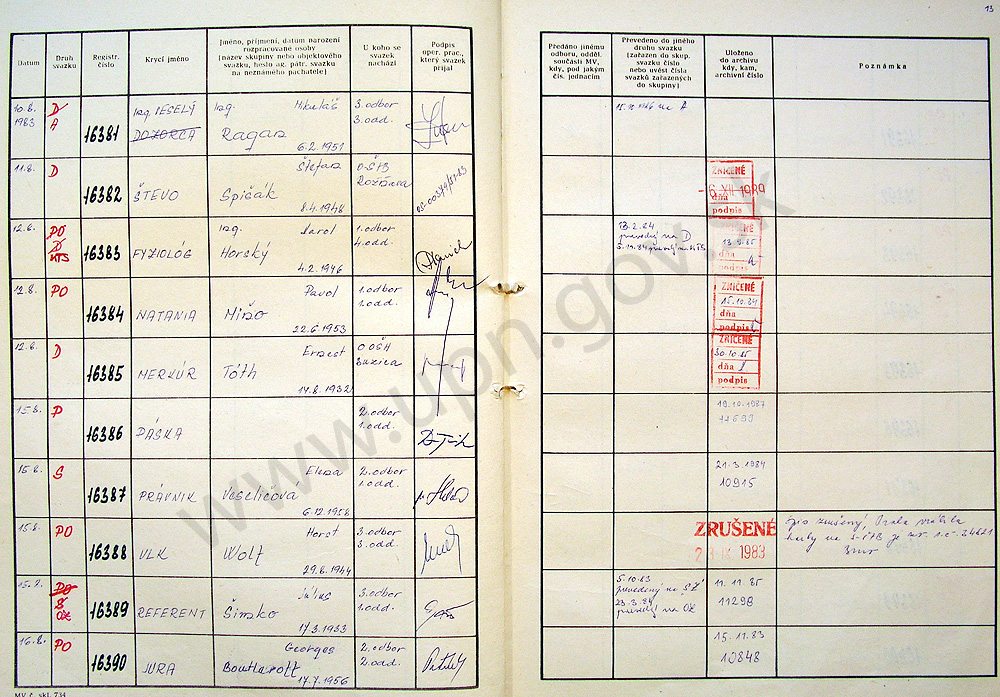 13
Datum
Druh
svazku
Registr.
číslo
Krycí jméno
Jméno, příjmení, datum narození
rozpracované osoby
(název skupiny nebo objektového
svazku, heslo ag. pátr. svazku
na neznámého pachatele)
U koho se
svazek
nachází
Podpis
oper. prac.,
který svazek
přijal
Předáno jinému
odboru, odděl.
součásti MV,
kdy, pod jakým
čís. jednacím
Převedeno do jiného
druhu svazku
(zařazen do skup.
svazku číslo
nebo uvést čísla
svazků zařazených
do skupiny)
Uloženo
do archivu
kdy, kam,
archivní číslo
Poznámka
10.8.
1983
D
A
16381
Ing. VESELÝ
DOZORCA
Ing. Mikuláš
Ragan
6.2.1951
3. odbor
3. odd.
11.8.
D
16382
ŠTEVO
Štefan
Spičák
8.4.1948
O-ŠTB
Rožňava
ZNIČENÉ
-6. XII. 1989
dňa
podpis
PO
D
KTS
16383
FYZIOLÓG
Ing. Karol
Horský
4.2.1946
1. odbor
4. odd.
13.2.84
na D
ZNIČENÉ
dňa
podpis
12.8.
PO
16384
NATANIA
Pavol
Mižo
22.6.1953
1. odbor
1. odd.
ZNIČENÉ
15.10.84
dňa
podpis
D
16385
MERKÚR
Ernest
Tóth
14.8.1932
ZNIČENÉ
30.10.85
dňa
podpis
15.8.
P
16386
PÁSKA
2. odbor
1. odd.
19.10.1987
S
16387
PRÁVNIK
Elena
Veselicová
6.12.1958
2. odbor
1. odd.
21.3.1984
10915
15.8.
PO
16388
VLK
Horst
Wolf
29.6.1944
3. odbor
3. odd.
ZRUŠENÉ
1983
spis zrušený,
DO
S
OZ
16389
REFERENT
Július
Šimko
17.3.1933
3. odbor
1. odd.
5.10.83
prevedený na SZ
23.3.84
prevedý na OZ
11.11.85
11298
16.8.
PO
16390
JURA
Georges
17.7.1956
2. odbor
2. odd.
15.11.83
10848
MV č. skl. 734
www.upn.gov.sk